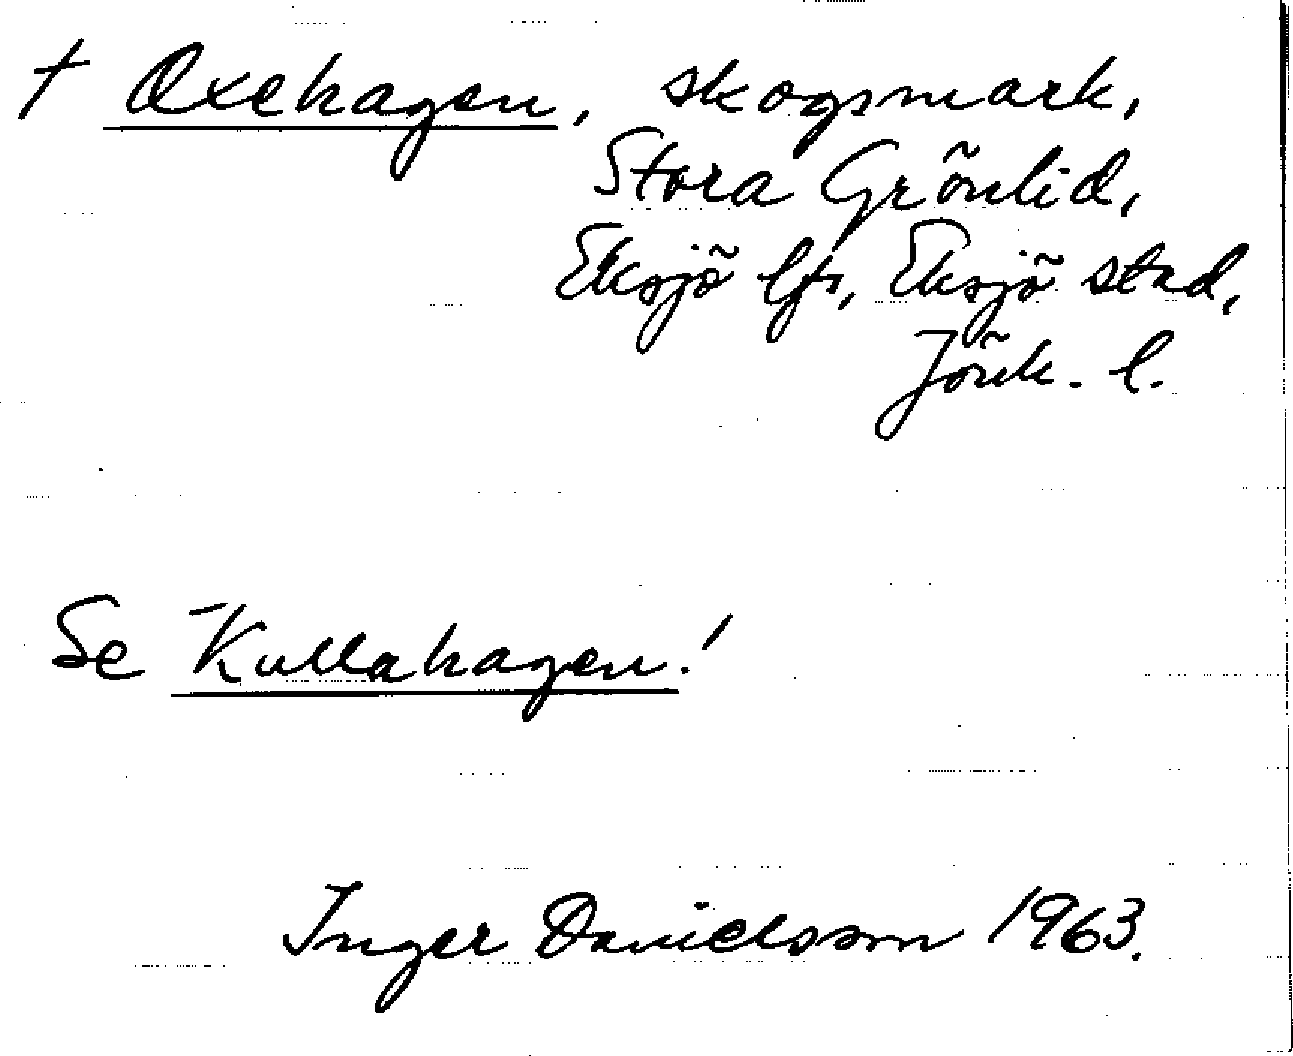 † Oxehagen, skogsmark,
Stora Grönlid,
Eksjö lfs, Eksjö stad,
Jönk. l.
Se Kullahagen!
Inger Danielsson 1963.